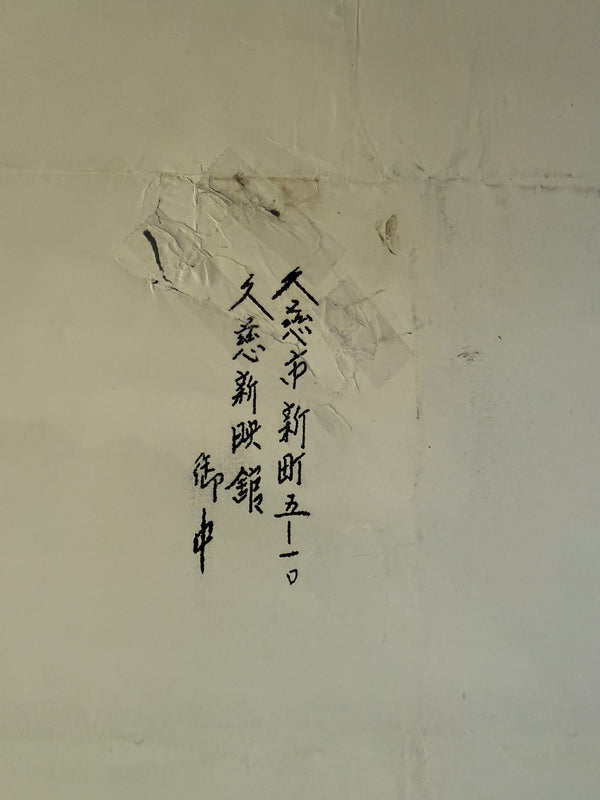 久慈市新町五ー一〇
久慈新映館
御中